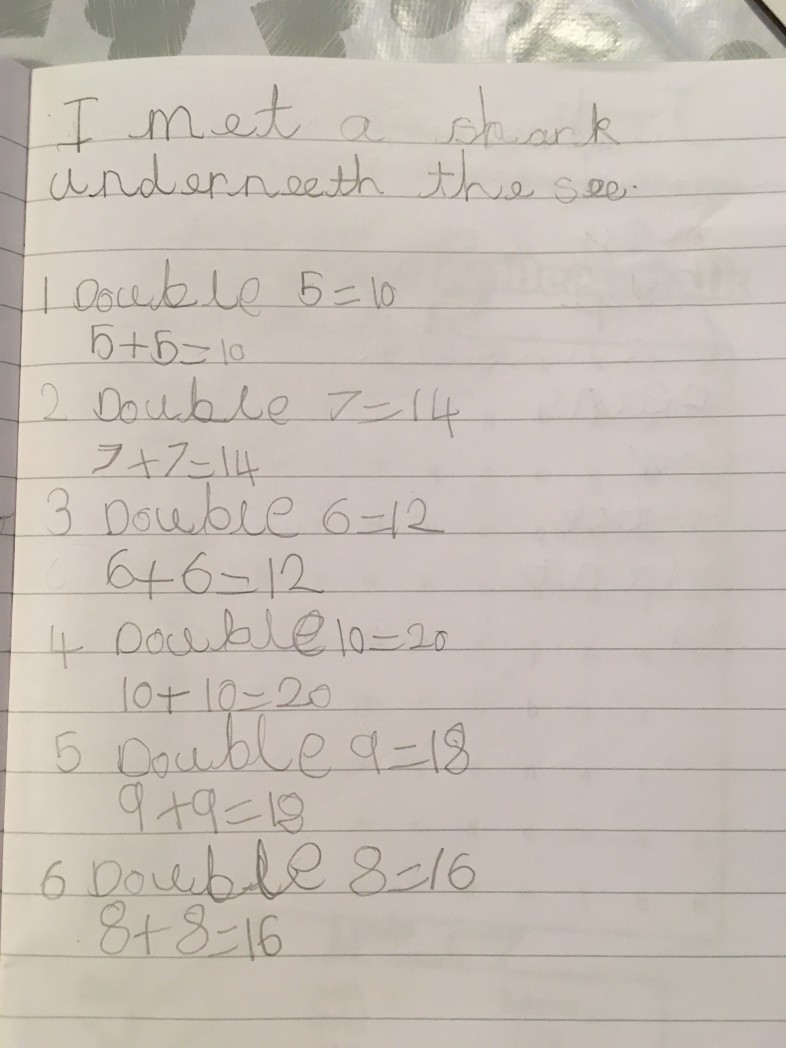 I met a shark
underneeth the see.
1 Double 5=10
5+5=10
2 Double 7=14
7+7=14
3 Double 6=12
6+6=12
4 Double 10=20
10+10=20
5 Double 9=18
9+9=18
6 Double 8=16
8+8=16